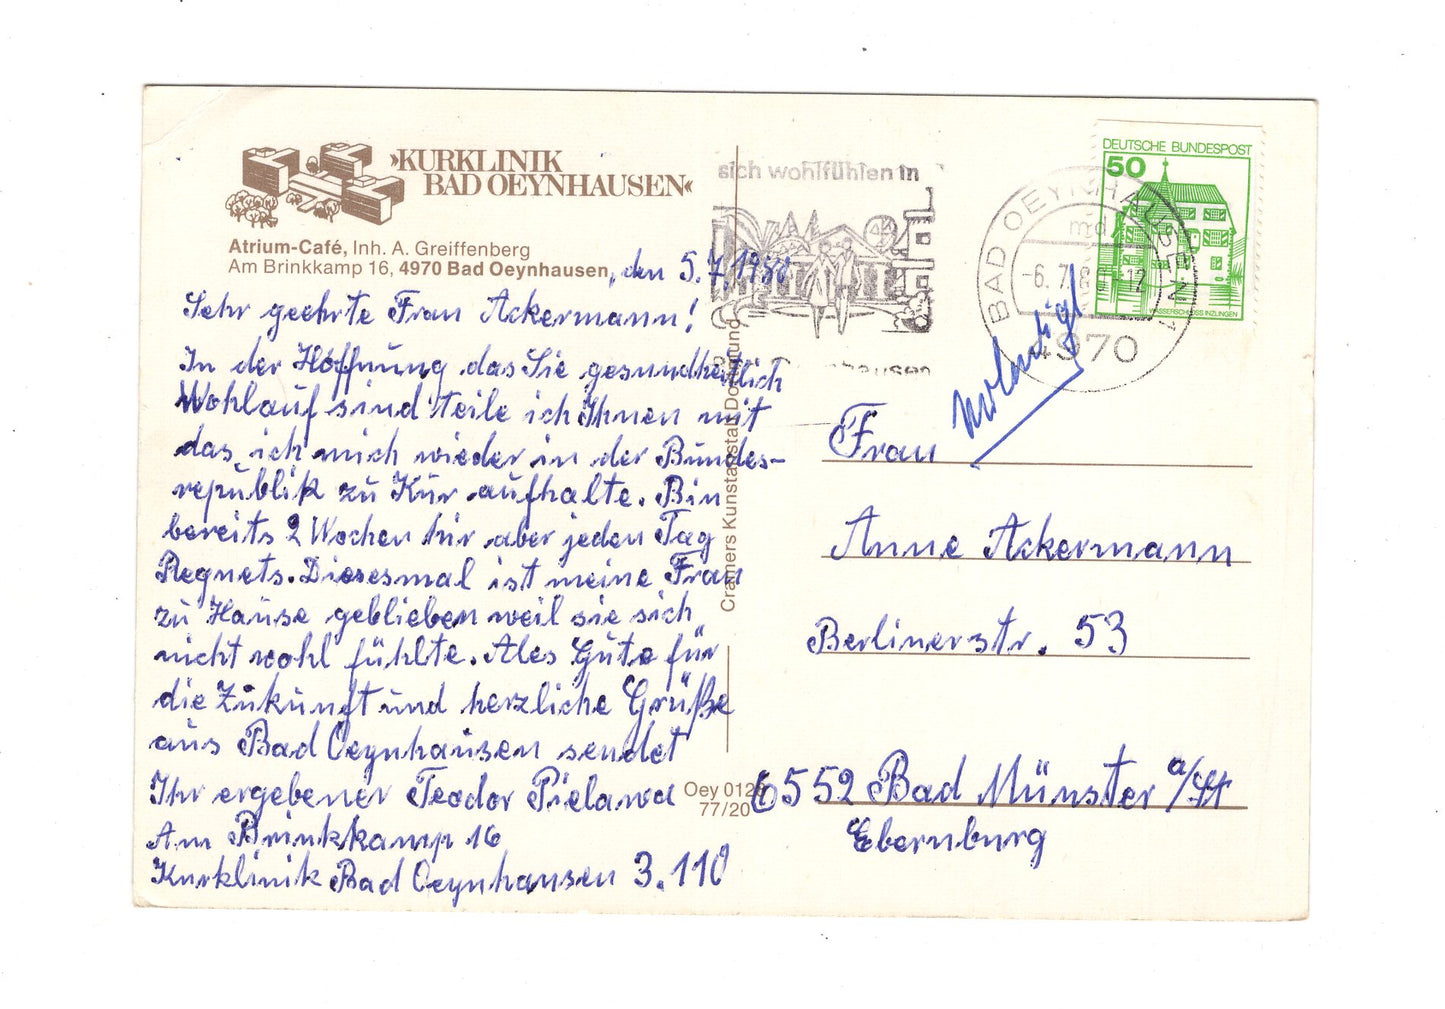 »KURKLINIK
BAD OEYNHAUSEN«
Atrium-Café, Inh. A. Greiffenberg
Am Brinkkamp 16, 4970 Bad Oeynhausen, den 5.7.1980
Sehr geehrte Frau Ackermann!
In der Hoffnung das Sie gesundheitlich
Wohlauf sind teile ich Ihnen mit
das ich mich wieder in der Bundes-
republik zu Kur aufhalte. Bin
bereits 2 Wochen hir aber jeden Tag
Regnets. Diesesmal ist meine Frau
zu Hause geblieben weil sie sich
nicht wohl fühlte. Ales Gute für
die Zukunft und herzliche Grüße
aus Bad Oeynhausen sendet
Ihr ergebener Teodor Pielawa
Am Brinkkamp 16
Kurklinik Bad Oeynhausen 3.110
Cramers Kunstanstalt Dortmund
Oey 012
77/20
sich wohlfühlen in
BAD OEYNHAUSEN 1
md
-6.7.8 -12
4970
DEUTSCHE BUNDESPOST
50
WASSERSCHLOSS INZLINGEN
Frau
Anne Ackermann
Berlinerstr. 53
6552 Bad Münster a/St
Ebernburg